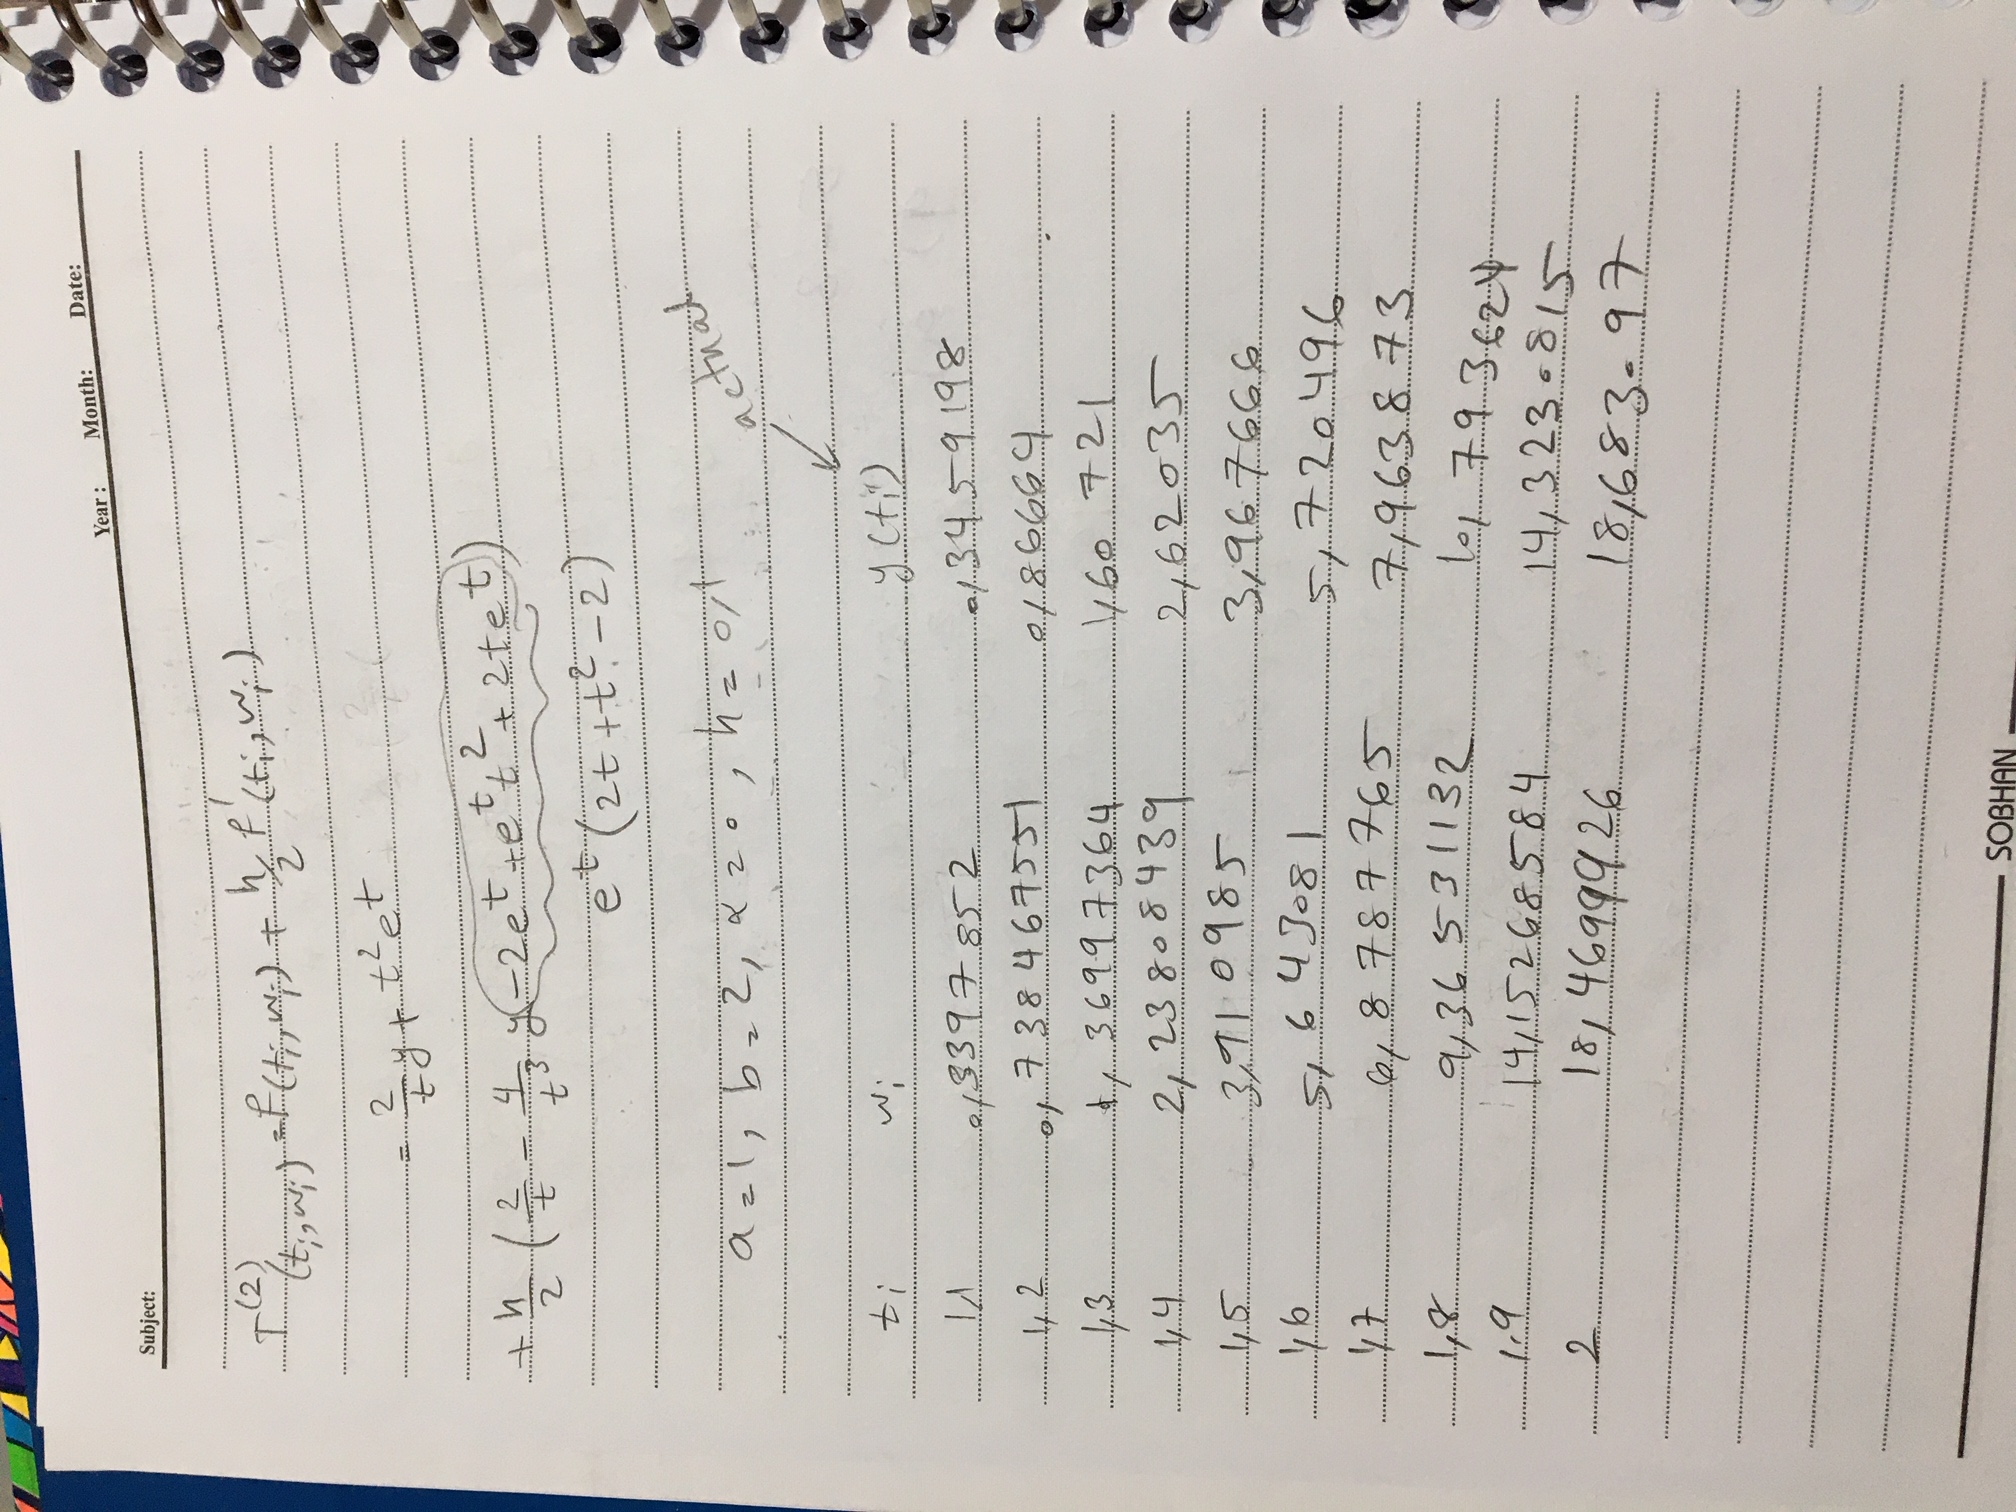 Year: Month: Date:
Subject:
T^(2)(ti, wi) = f(ti, wi) + h/2 f'(ti, wi)
= 2/t y + t² e^t
+ h/2 (2/t - 4/t³ y - 2e^t + e^t t² + 2te^t)
e^t (2t + t² - 2)
a = 1, b = 2, α = 0, h = 0,1
actual
ti wi y(ti)
1,1 0,3397852 0,3459198
1,2 0,738467551 0,866664
1,3 1,36997364 1,60721
1,4 2,23808439 2,62035
1,5 3,910985 3,967666
1,6 5,643081 5,720496
1,7 6,8787765 7,963873
1,8 9,36531132 10,793624
1.9 14,15268584 14,3230815
2 18,46999926 18,683097
SOBHAN